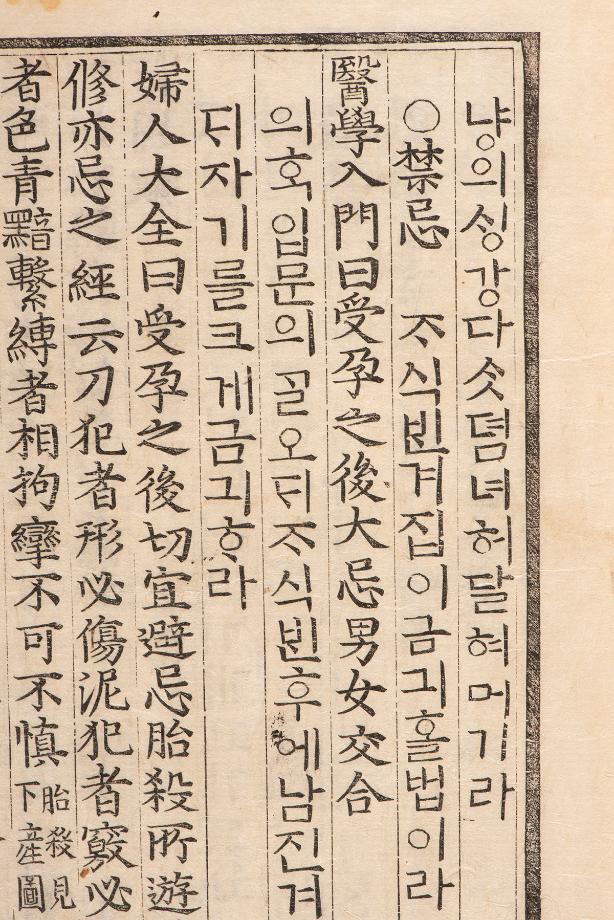 냥의ᄉᆡᆼ강다ᄉᆞᆺ뎜녀허달혀머기라
○禁忌 ᄌᆞ식ᄇᆡᆫ겨집이금긔ᄒᆞᆯ법이라
醫學入門曰受孕之後大忌男女交合
의ᄒᆞᆨ입문의ᄀᆞᆯ오ᄃᆡᄌᆞ식ᄇᆡᆫ후에남진겨
ᄃᆡ자기를크게금긔ᄒᆞ라
婦人大全曰受孕之後切宜避忌胎殺所遊
修亦忌之經云刀犯者形必傷泥犯者竅必
者色青黯繫縛者相拘攣不可不慎胎殺見下産圖